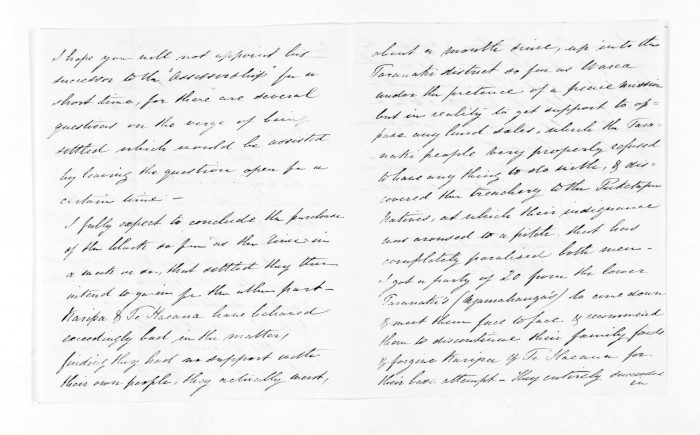 I hope you will not appoint his
successor to the "Assessorship" for a
short time, for there are several
questions on the verge of being
settled which would be assisted
by leaving the question open for a
certain time —
I fully expect to conclude the purchase
of the block so far as the in
a week or so, that settled they then
intend to go in for the other part —
Karipa & Te Hacana have behaved
exceedingly bad in the matter,
finding they had no support with
their own people, they actually went,
about a month since, up into the
Taranaki district so far as Warea
under the pretence of a peace mission
but in reality to get support to op-
pose any land sales, which the Tara-
naki people very properly refused
to have any thing to do with, & dis-
covered the treachery to the Puketapu
Natives, at which their indignance
was aroused to a pitch that has
completely paralised both men —
I got a party of 20 from the lower
Taranaki's (Ngamahanga's) to come down
& meet them face to face & recommend
them to discontinue their family feuds
& forgive Karipa & Te Hacana for
their base attempt — They entirely succeeded
in